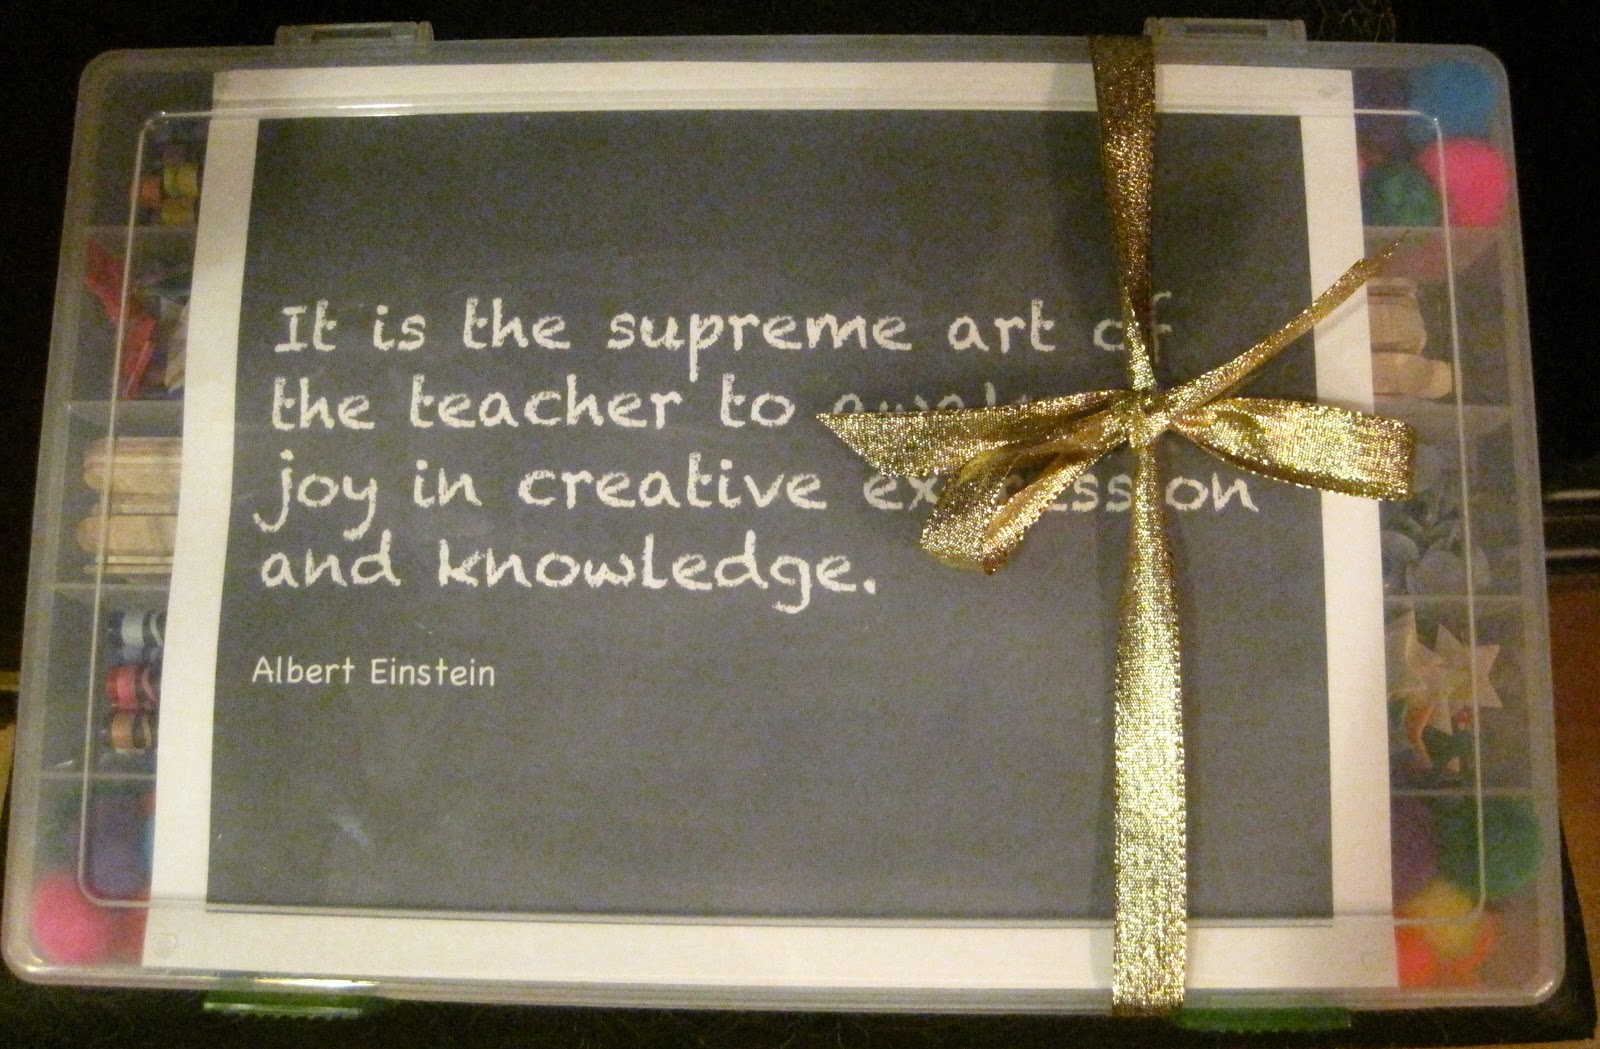 It is the supreme art of
the teacher to
joy in creative expression
and knowledge.
Albert Einstein